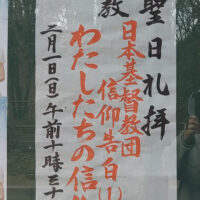 聖日礼拝
教
日本基督教団
信仰告白(1)
わたしたちの信
二月一日(日)午前十時三十